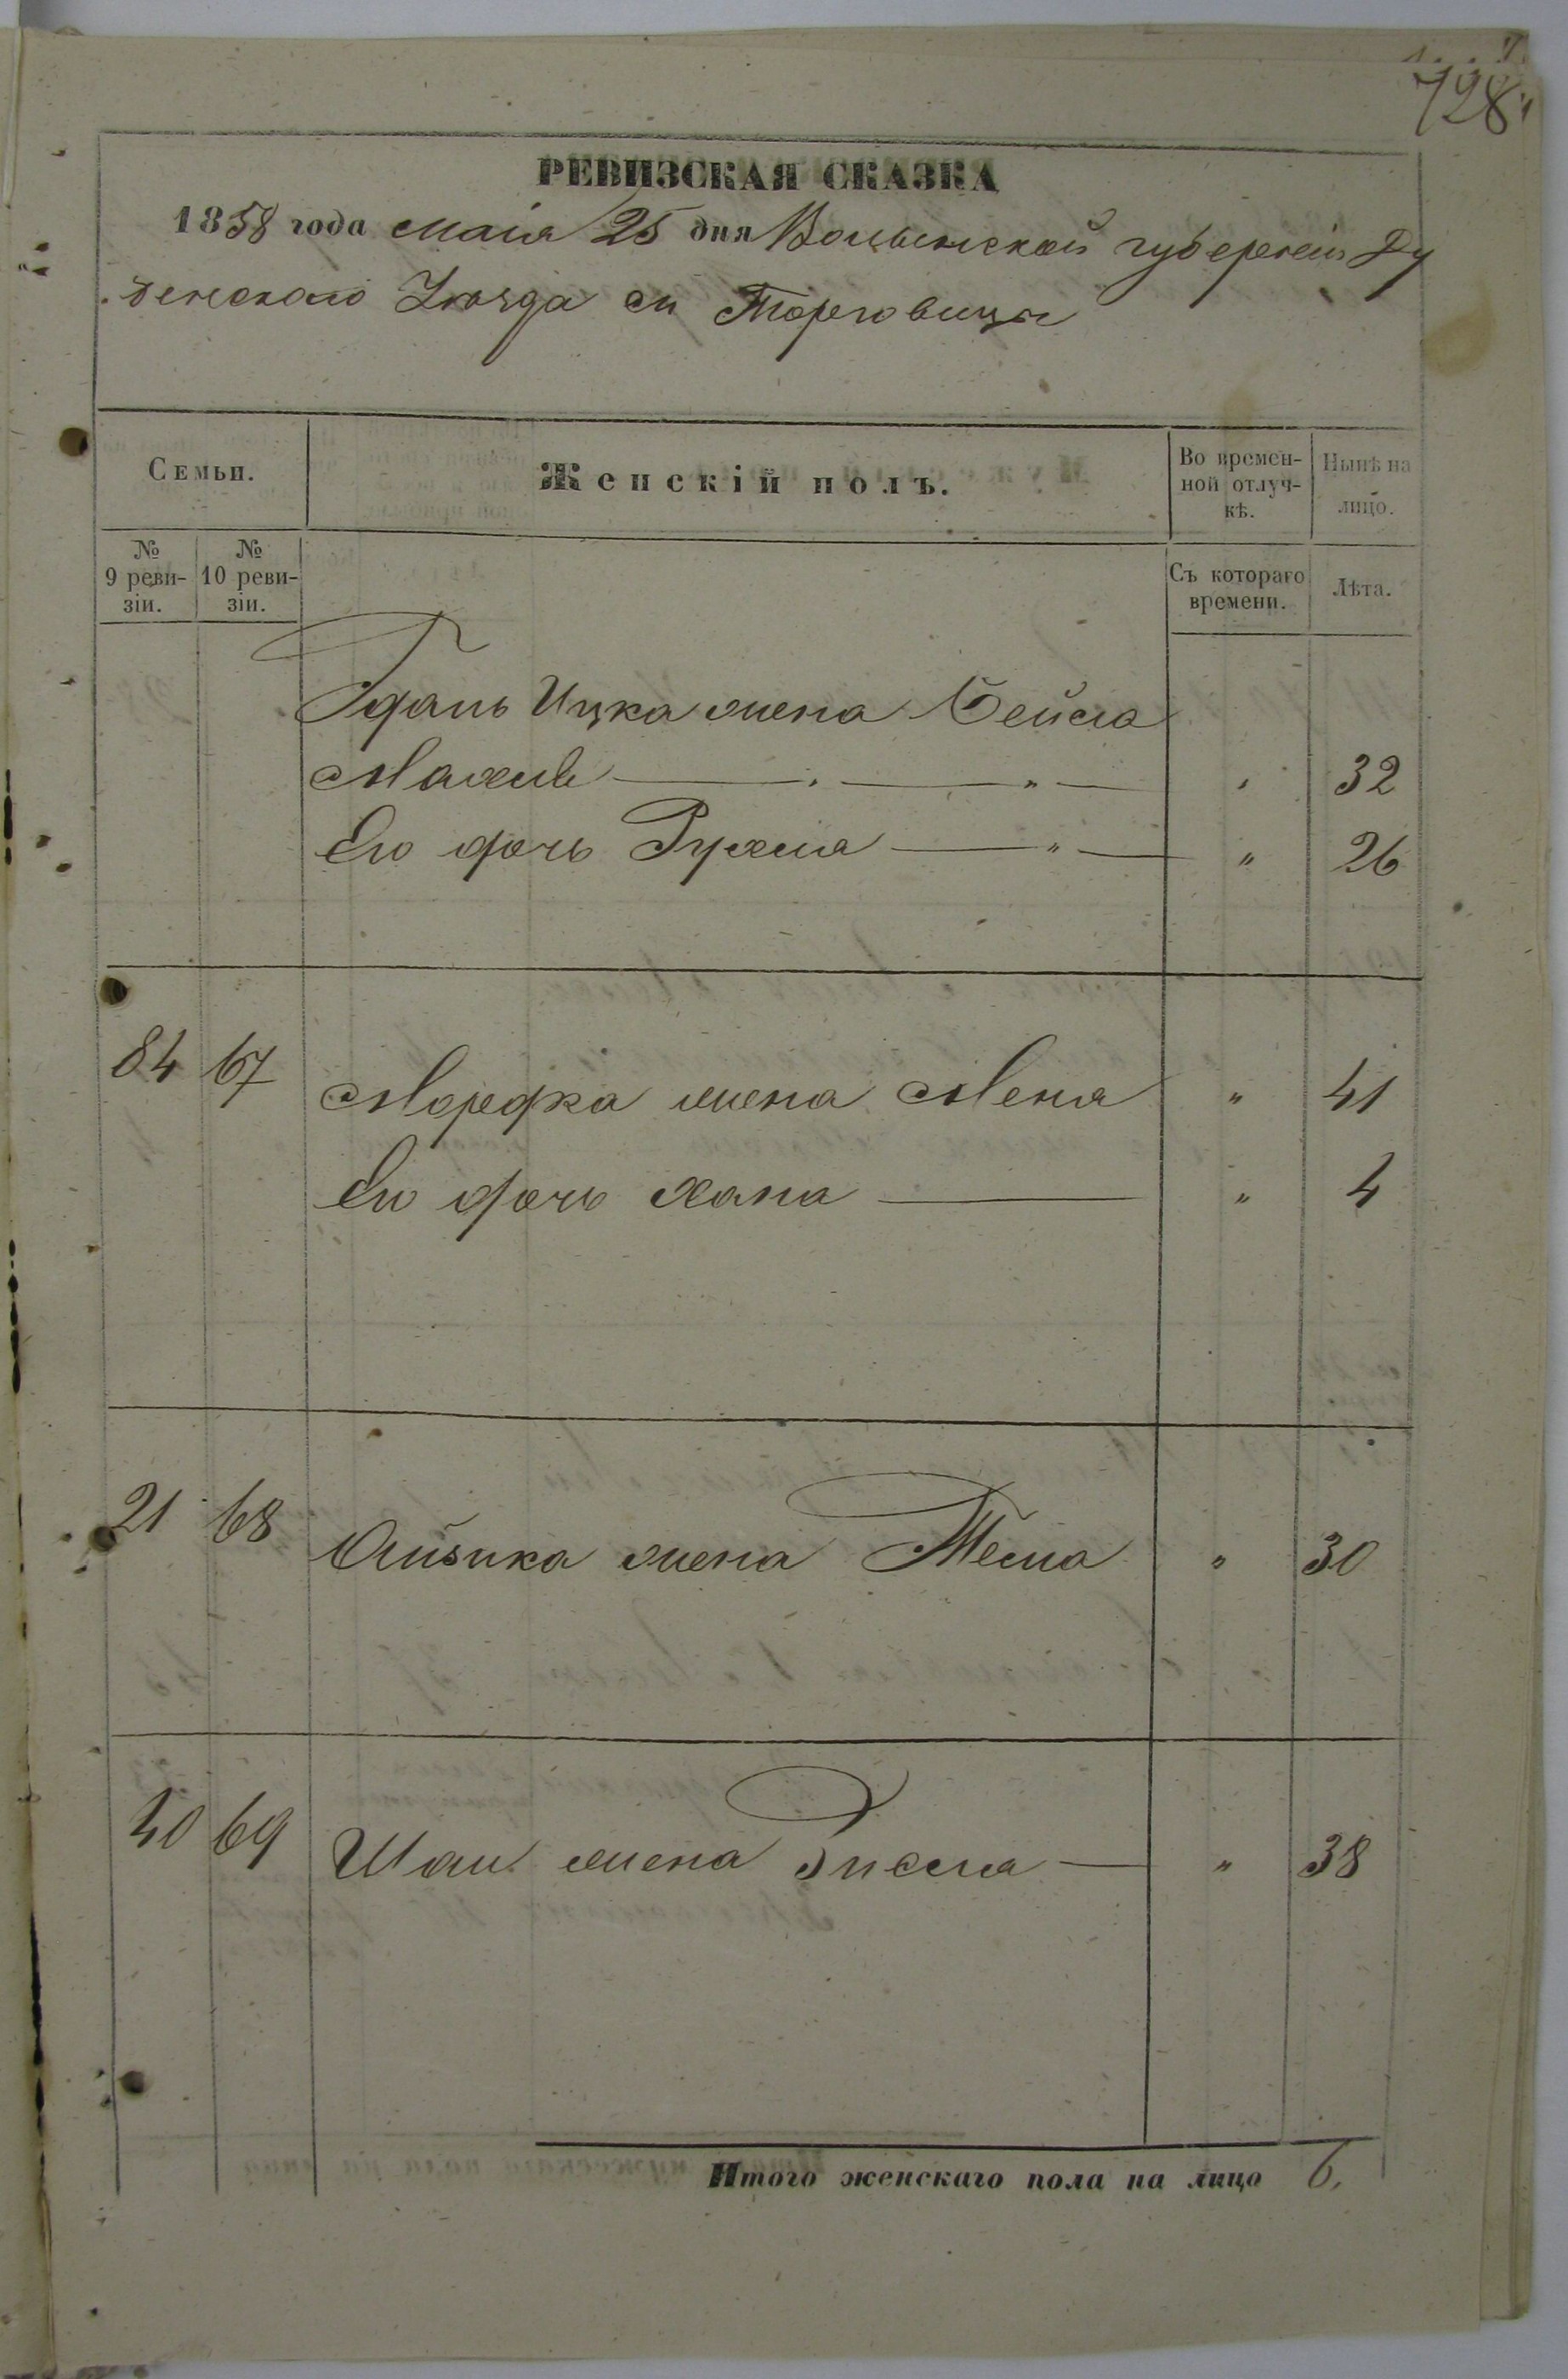 728
РЕВИЗСКАЯ СКАЗКА
1858 года Маія 25 дня Волынской губерніи Ду
бенскаго Уѣзда м Торговицы
Семьи.
Женскій полъ.
Во времен-
ной отлуч-
кѣ.
Нынѣ на
лицо.
№
9 реви-
зіи.
№
10 реви-
зіи.
Съ котораго
времени.
Лѣта.
Гдаль Ицка жена Бейла
Малке " 32
Его дочь Рухля " " 26
84 67 Мордка жена Меня " 41
Его дочь Хана " 4
21 68 жена " 30
40 69 жена " 38
Итого женскаго пола на лицо 6.